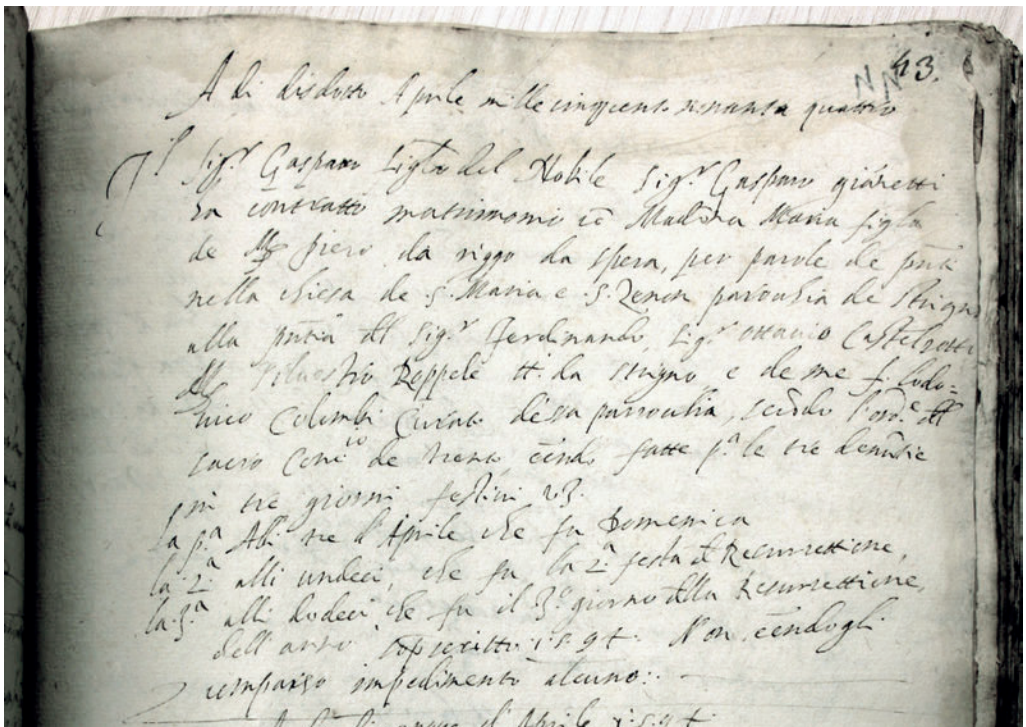 43.
N N
A di disdotto Aprile mille cinquecento novanta quattro
Il Sigr. Gasparo figlo del Nobile Sigr. Gasparo giannetti
ha contratto matrimonio cō Madōna Maria figla
de Mr piero da riggo da spera, per parole de pñti
nella chiesa de S. Maria e S. Zenon parochia de strigno
alla pñtia dl Sigr. Ferdinando, Sigr. ottavio Castelrotti
Silvestro Zoppele tt. da strigno e de me f. Lodo=
vico Colombi Curato de essa parrochia, secōdo l'orde. dll
sacro Concio de trento, ēendo fatte p.a le tre denūtie
in tre giorni festivi
la p.a Alli tre d'Aprile che fu Domenica
la 2.a alli undeci, che fu la 2.a festa d Resurrettione,
la 3.a alli dodeci che fu il 3.o giorno della Resurrettione,
dell'anno sopscritto 1594. Non ēendogli
comparso impedimento alcuno:
A di d'Aprile 1594